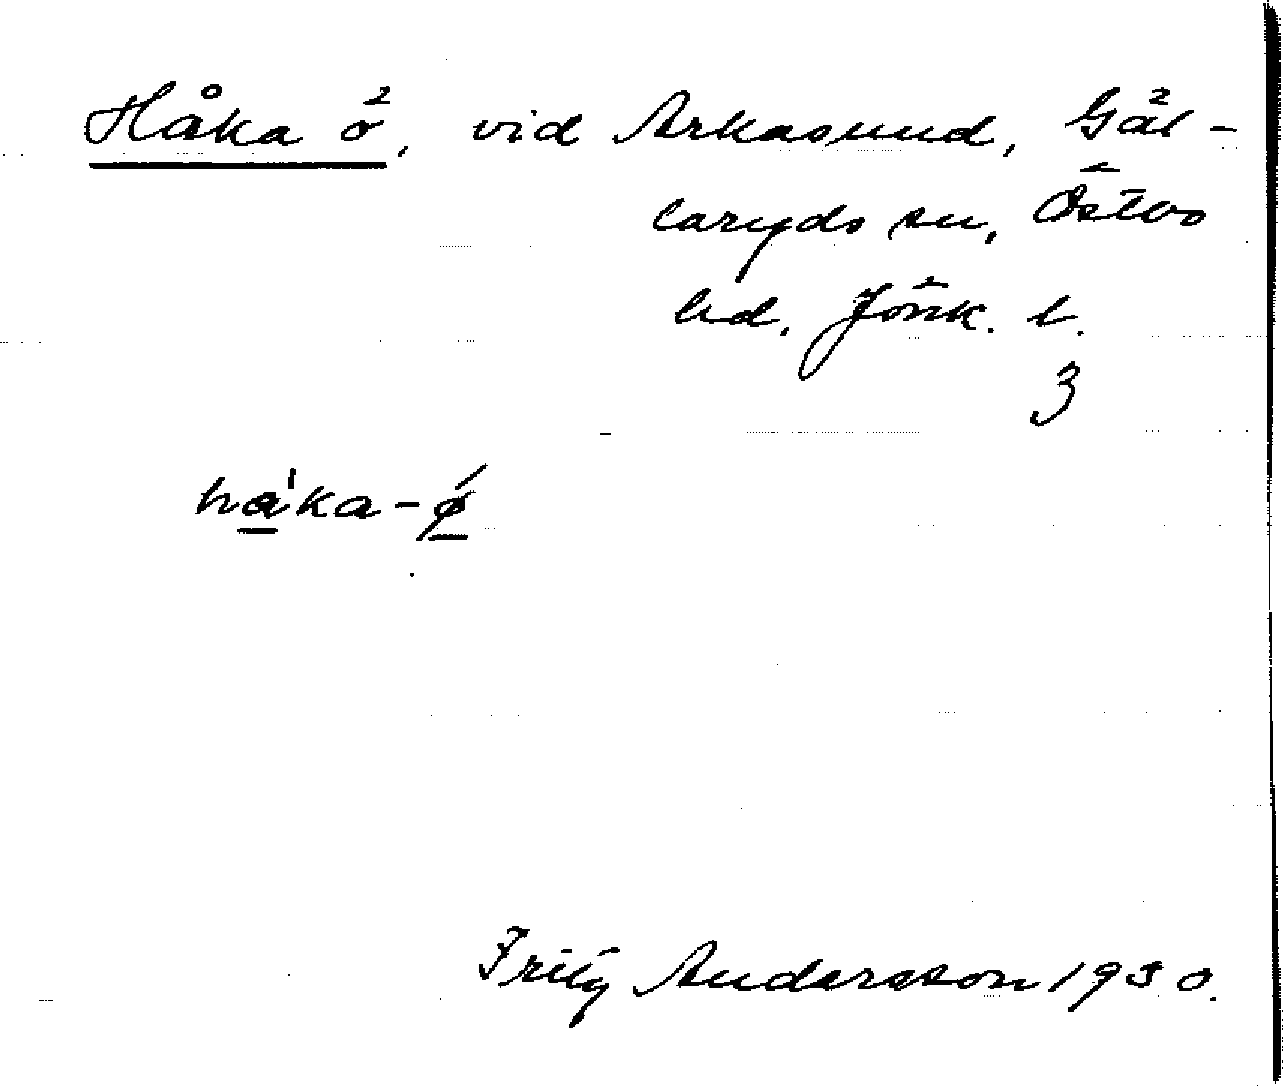 Håka ö, vid Arkasund, Gäl-
laryds sn, Östbo
hd. Jönk. l.
3
ha'ka-ø
Fritz Andersson 1930.